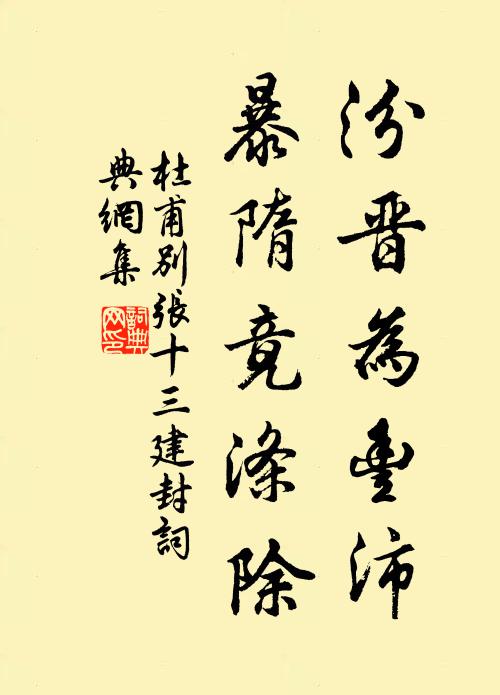 汾晋為豐沛
暴隋竟滌除
杜甫別張十三建封詞
典網集
詞典網印